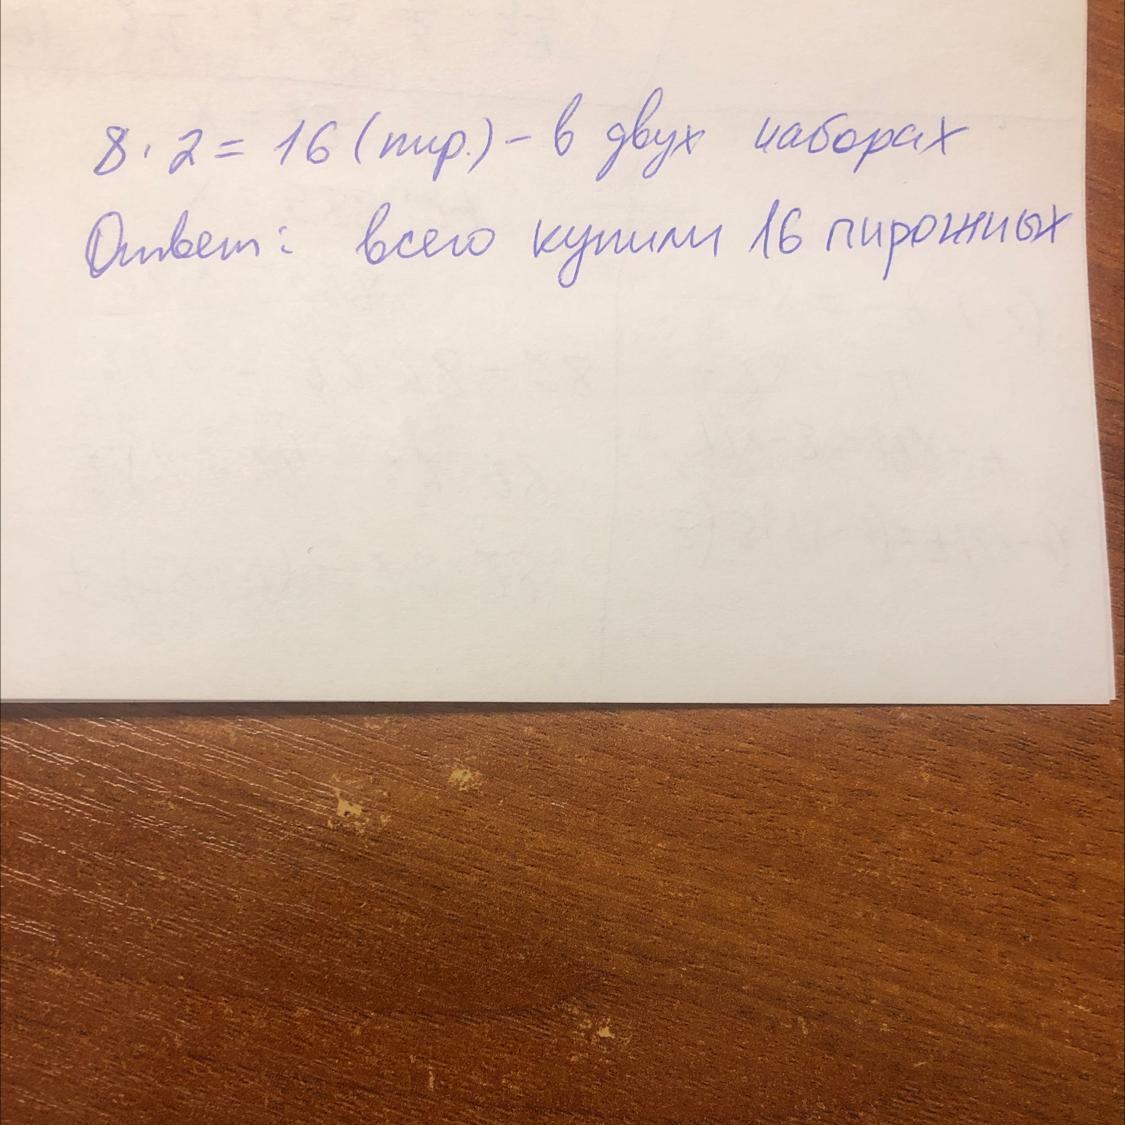 8 · 2 = 16 (пир.) – в двух наборах
Ответ: всего купили 16 пирожных